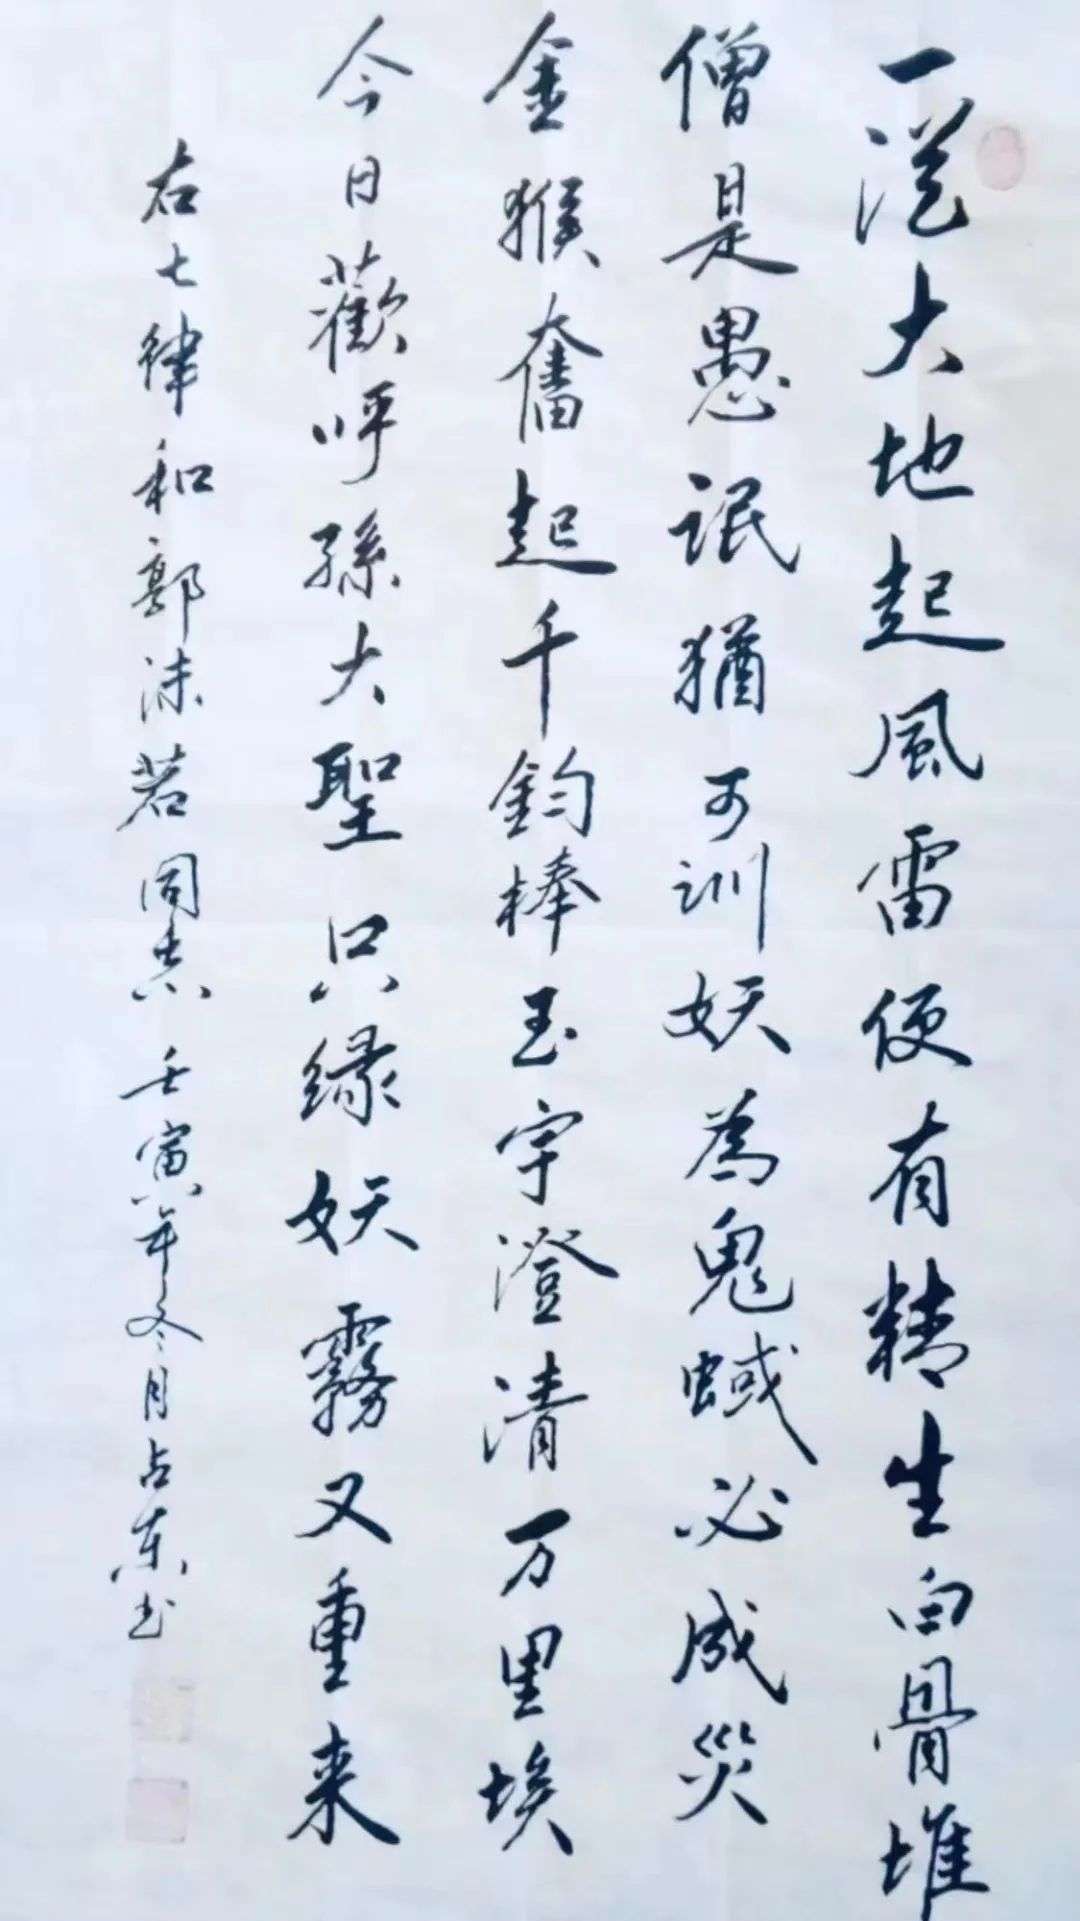 一從大地起風雷便有精生白骨堆
僧是愚氓猶可訓妖為鬼蜮必成災
金猴奮起千鈞棒玉宇澄清万里埃
今日歡呼孫大聖只緣妖霧又重来
右七律和郭沫若同志壬寅年冬月占東书